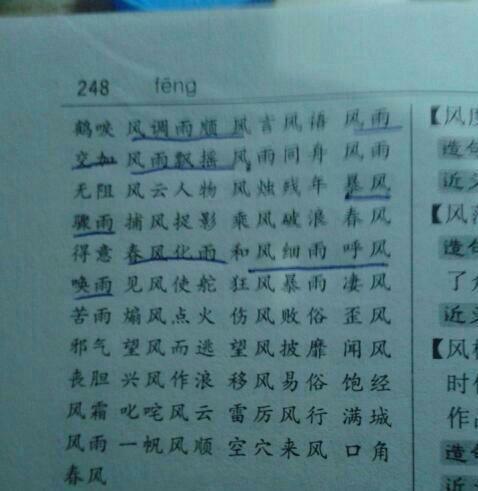 248 fēng
鹤唳 风调雨顺 风言风语 风雨
交加 风雨飘摇 风雨同舟 风雨
无阻 风云人物 风烛残年 暴风
骤雨 捕风捉影 乘风破浪 春风
得意 春风化雨 和风细雨 呼风
唤雨 见风使舵 狂风暴雨 凄风
苦雨 煽风点火 伤风败俗 歪风
邪气 望风而逃 望风披靡 闻风
丧胆 兴风作浪 移风易俗 饱经
风霜 叱咤风云 雷厉风行 满城
风雨 一帆风顺 空穴来风 口角
春风
【风度
造句
近义
【风
造句
了
近义
【风
时
作
造句
近